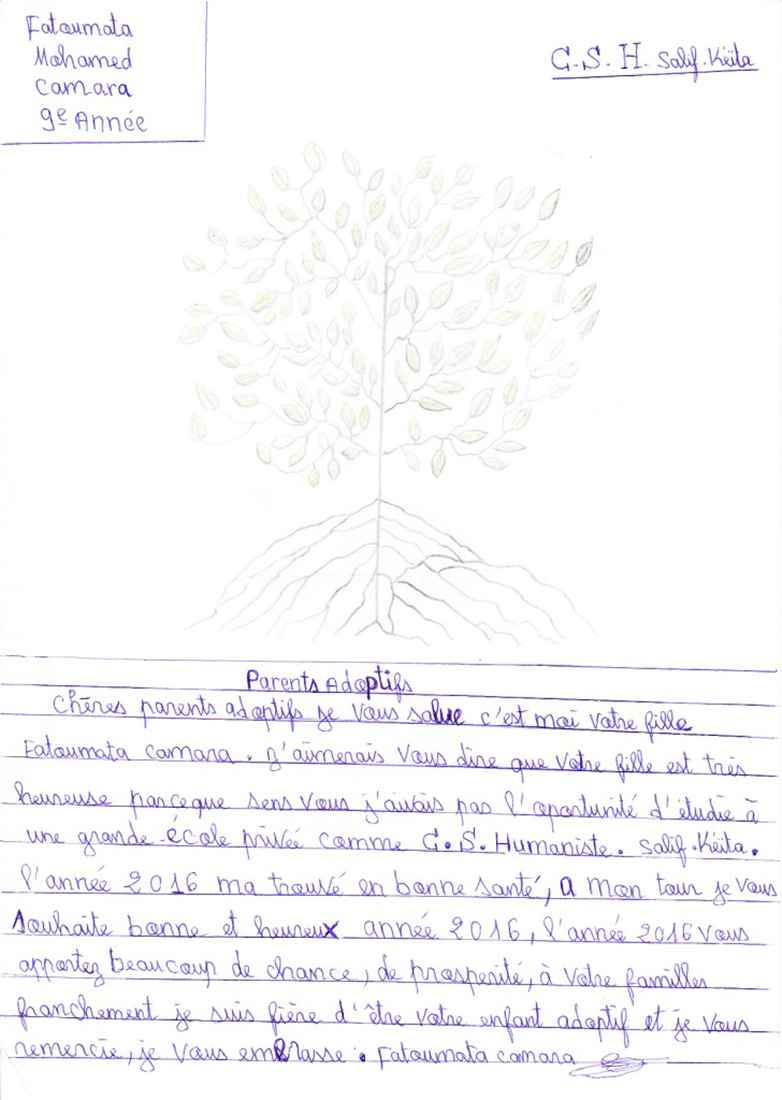 Fatoumata
Mohamed
camara
9e Année
G.S.H. Salif.Kéita
Parents Adoptifs
Chères parents adoptifs je vous salue c'est moi votre fille
Fatoumata camara. j'aimerais vous dire que votre fille est très
heureuse parceque sens vous j'aurais pas l'oportunité d'étudié à
une grande école privée comme G.S.Humaniste. Salif.Kéita.
l'année 2016 ma trouvé en bonne santé, A mon tour je vous
souhaite bonne et heureux année 2016, l'année 2016 vous
apportez beaucoup de chance, de prosperité, à votre familles
franchement je suis fière d'être votre enfant adoptif et je vous
remercie, je vous embrasse. Fatoumata camara